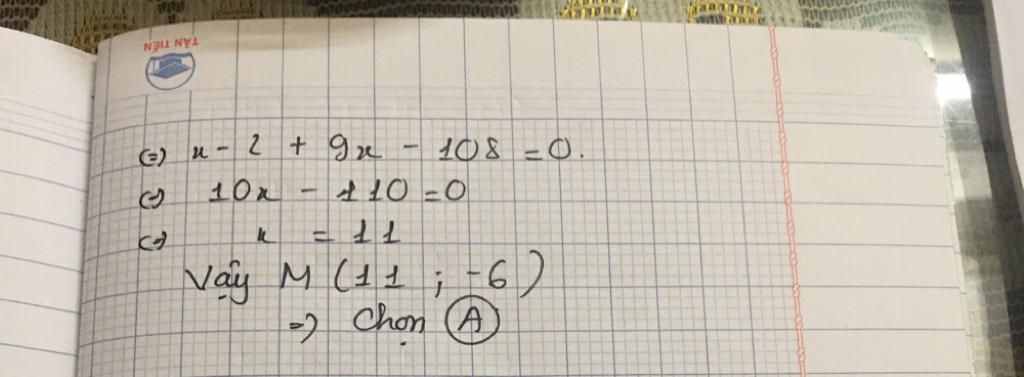 TÂN TIẾN
(=) x - 2 + 9x - 108 = 0.
(=) 10x - 110 = 0
(=) x = 11
Vậy M (11 ; -6)
=) Chọn A